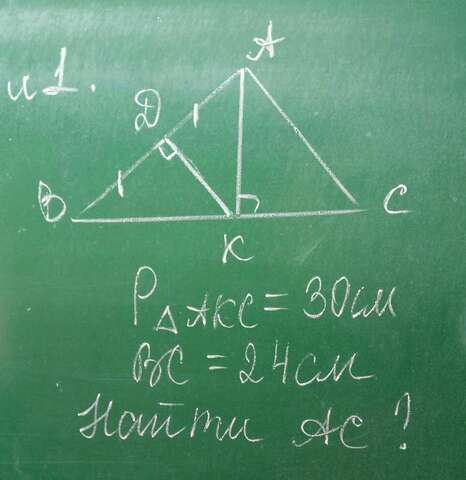 и 1.
A
D
B
C
K
P△AKC = 30см
BC = 24см
Найти AC?